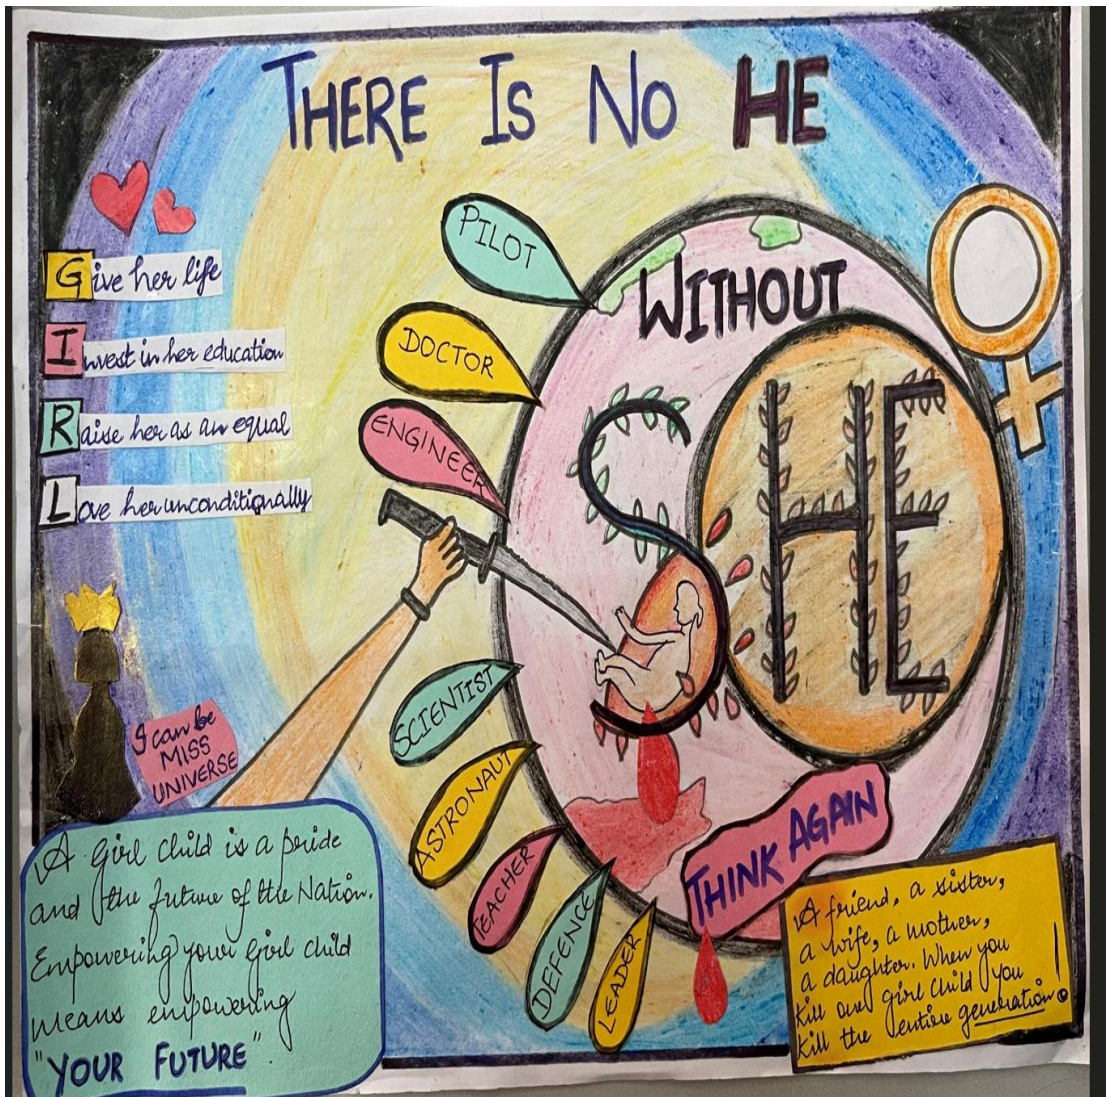 THERE IS NO HE
WITHOUT
SHE
Give her life
Invest in her education
Raise her as an equal
Love her unconditionally
PILOT
DOCTOR
ENGINEER
SCIENTIST
ASTRONAUT
TEACHER
DEFENCE
LEADER
I can be
MISS
UNIVERSE
THINK AGAIN
A girl child is a pride
and the future of the Nation.
Empowering your girl child
means empowering
"YOUR FUTURE".
A friend, a sister,
a wife, a mother,
a daughter. When you
kill one girl child you
kill the entire generation!